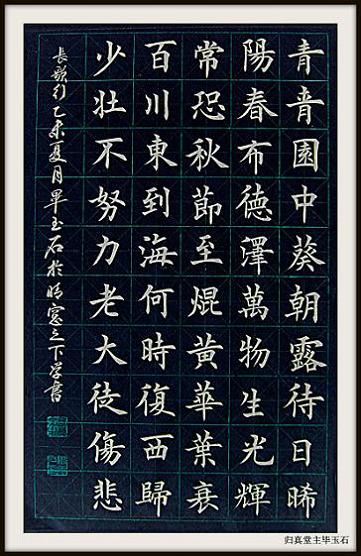 青青園中葵朝露待日晞
陽春布德澤萬物生光輝
常恐秋節至焜黃華葉衰
百川東到海何時復西歸
少壯不努力老大徒傷悲
長歌行乙未夏月畢玉石於晴窓之下学書
归真堂主毕玉石